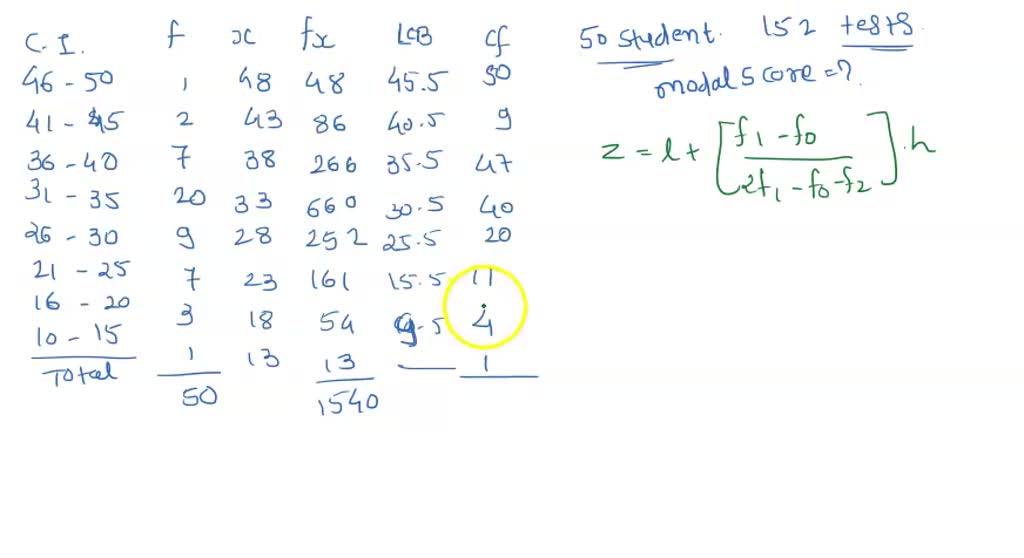 C.I. f x fx LCB cf
46 - 50 1 48 48 45.5 50
41 - 45 2 43 86 40.5 9
36 - 40 7 38 266 35.5 47
31 - 35 20 33 660 30.5 40
26 - 30 9 28 252 25.5 20
21 - 25 7 23 161 15.5 11
16 - 20 3 18 54 9.5 4
10 - 15 1 13 13 1
Total 50 1540
50 student. 152 tests
modal score = ?
z = l + [f1 - f0 / 2f1 - f0 - f2] . h